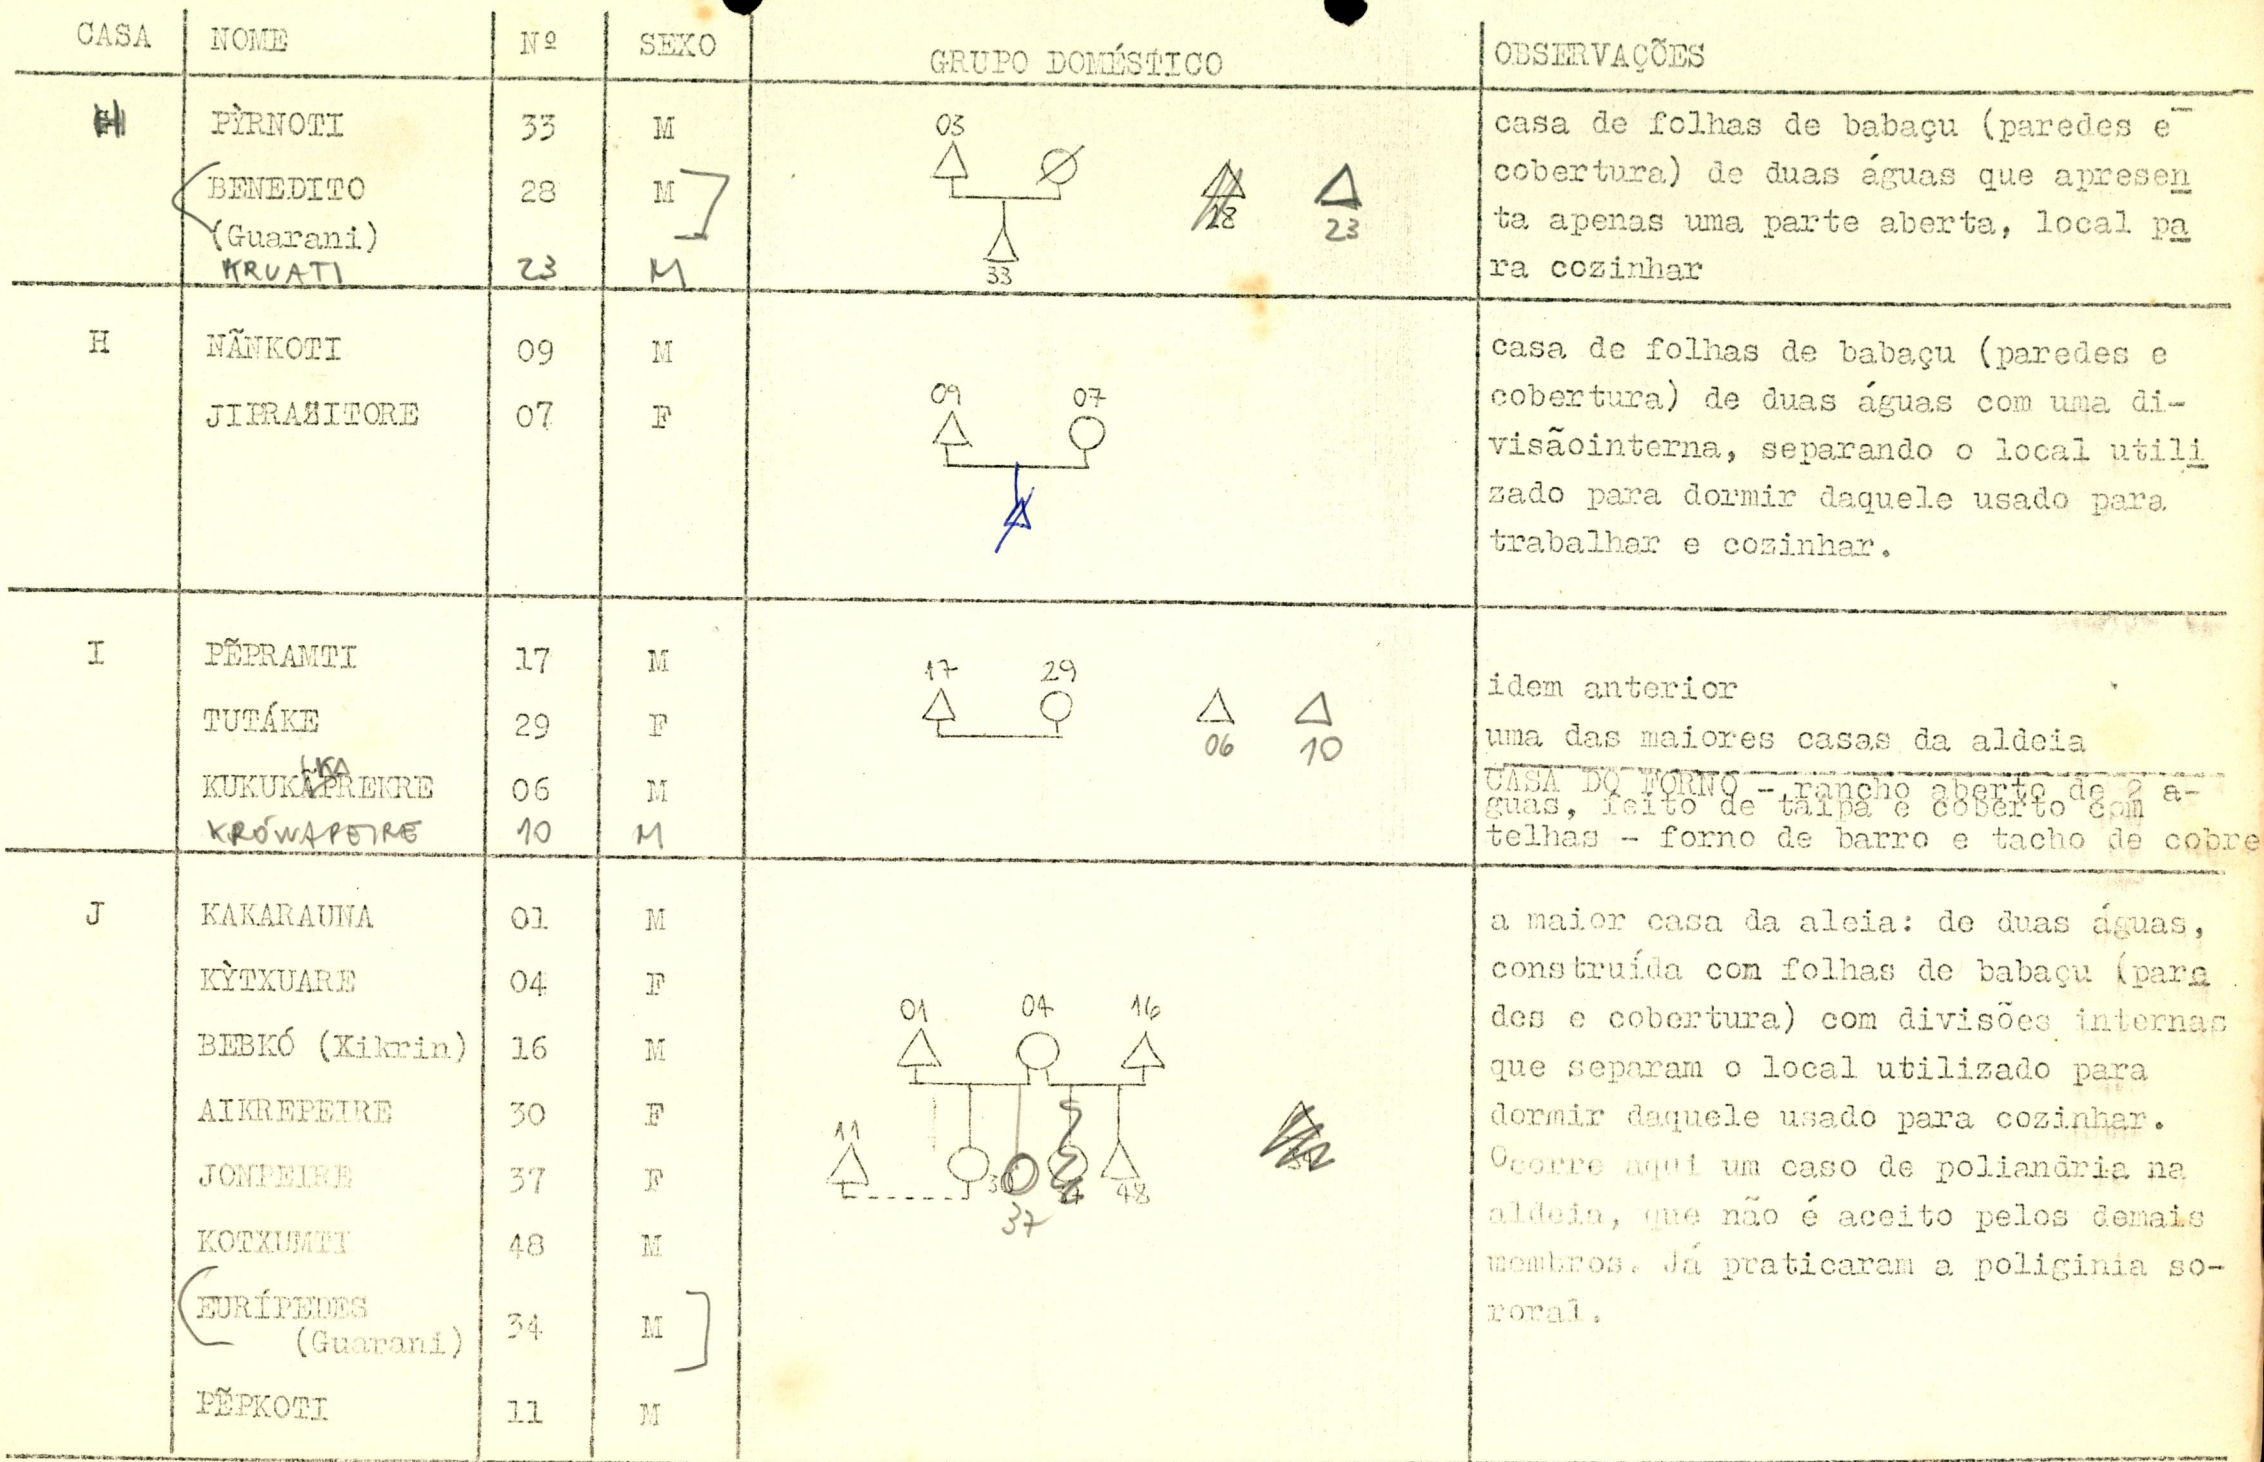 CASA NOME Nº SEXO GRUPO DOMÉSTICO OBSERVAÇÕES
H PỲRNOTI 33 M
BENEDITO 28 M
(Guarani)
KRUATI 23 M
03
33
23
casa de folhas de babaçu (paredes e
cobertura) de duas águas que apresen
ta apenas uma parte aberta, local pa
ra cozinhar
H NÃNKOTI 09 M
JIPRASITORE 07 F
09 07
casa de folhas de babaçu (paredes e
cobertura) de duas águas com uma di-
visãointerna, separando o local utili
zado para dormir daquele usado para
trabalhar e cozinhar.
I PẼPRAMTI 17 M
TUTÁKE 29 F
KUKUKÃPREKRE 06 M
KRÓWAPEIRE 10 M
17 29
06 10
idem anterior
uma das maiores casas da aldeia
CASA DO FORNO - rancho aberto de 2 a-
guas, feito de taipa e coberto com
telhas - forno de barro e tacho de cobre
J KAKARAUNA 01 M
KỲTXUARE 04 F
BEBKÓ (Xikrin) 16 M
AIKREPEIRE 30 F
JONPEIRE 37 F
KOTXUMTI 48 M
EURÍPEDES
(Guarani) 34 M
PẼPKOTI 11 M
01 04 16
11
48
37
a maior casa da aleia: de duas águas,
construída com folhas de babaçu (pare
des e cobertura) com divisões internas
que separam o local utilizado para
dormir daquele usado para cozinhar.
Ocorre aqui um caso de poliandria na
aldeia, que não é aceito pelos demais
membros. Já praticaram a poliginia so-
roral.